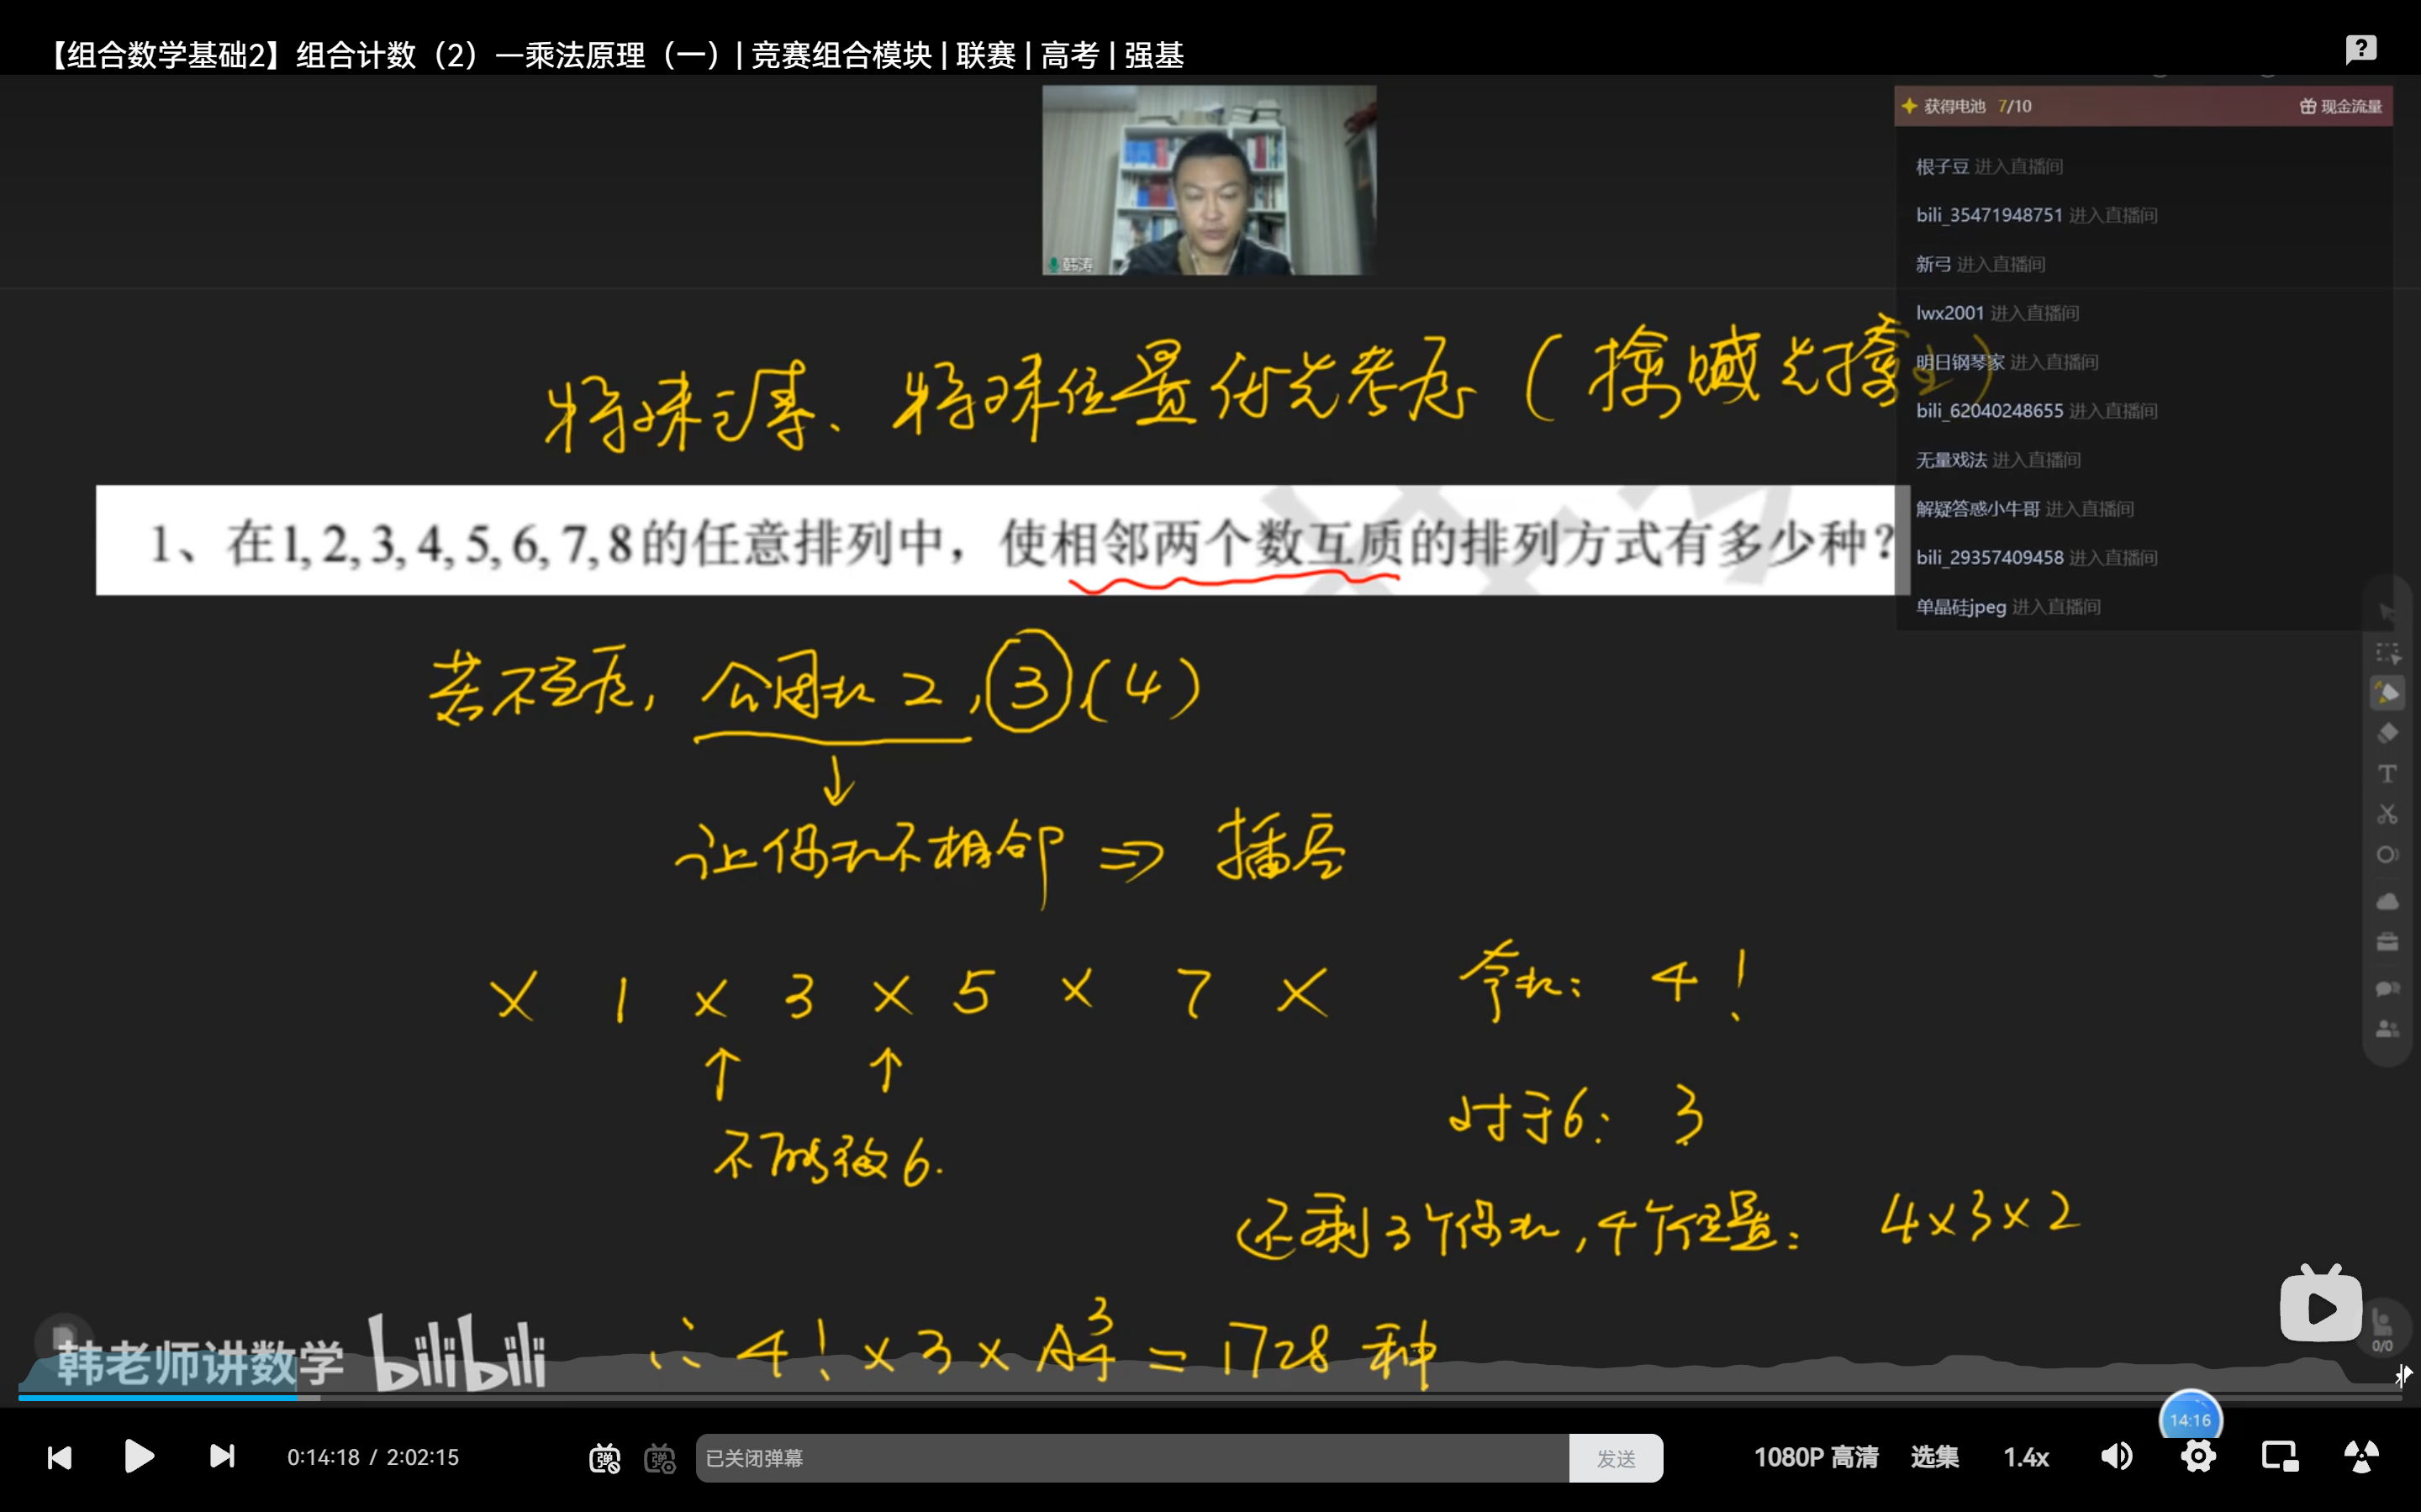 【组合数学基础2】组合计数（2）—乘法原理（一）| 竞赛组合模块 | 联赛 | 高考 | 强基
韩涛
获得电池 7/10 现金流量
根子豆 进入直播间
bili_35471948751 进入直播间
新弓 进入直播间
lwx2001 进入直播间
明日钢琴家 进入直播间
bili_62040248655 进入直播间
无量戏法 进入直播间
解疑答惑小牛哥 进入直播间
bili_29357409458 进入直播间
单晶硅jpeg 进入直播间
特殊元素、特殊位置优先考虑（擒贼先擒王）
1、在1,2,3,4,5,6,7,8的任意排列中，使相邻两个数互质的排列方式有多少种？
若不互质，公因数 2，③（4）
↓
让偶数不相邻 ⇒ 插空
× 1 × 3 × 5 × 7 × 奇数：4！
↑ ↑
不能放6. 对于6：3
还剩3个偶数，4个位置：4×3×2
∴ 4！×3×A₄³=1728 种
韩老师讲数学 bilibili
0/0
14:16
0:14:18 / 2:02:15
弹
弹
已关闭弹幕
发送
1080P 高清 选集 1.4x